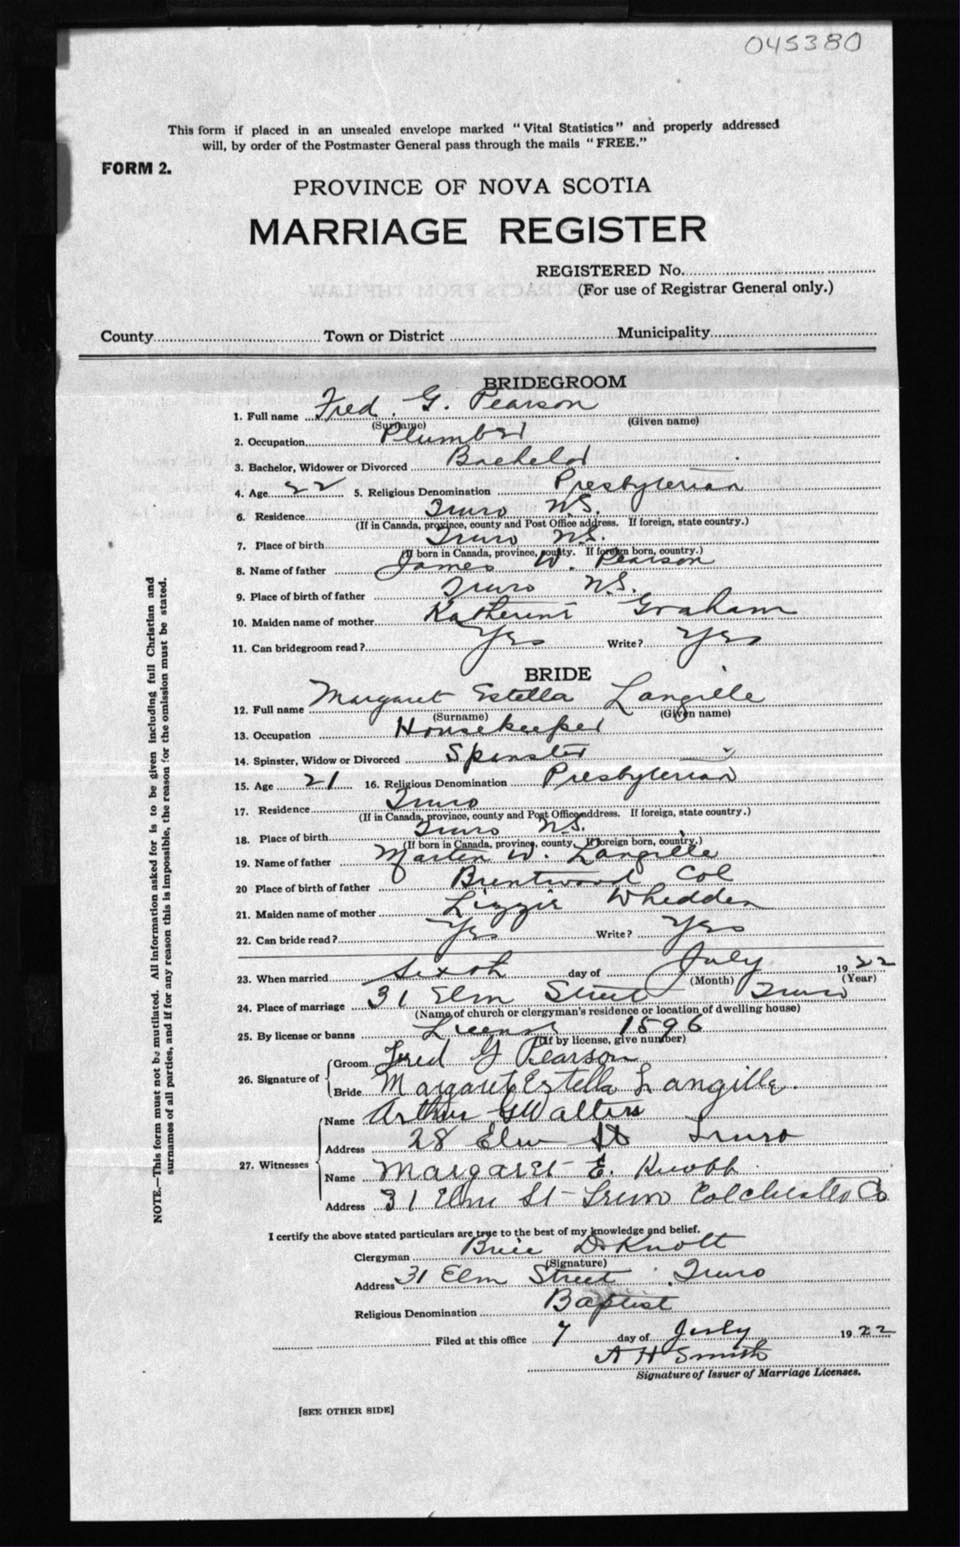 045380
This form if placed in an unsealed envelope marked "Vital Statistics" and properly addressed
will, by order of the Postmaster General pass through the mails "FREE."
FORM 2.
PROVINCE OF NOVA SCOTIA
MARRIAGE REGISTER
REGISTERED No.
(For use of Registrar General only.)
County Town or District Municipality
BRIDEGROOM
1. Full name Fred. G. Pearson
(Surname) (Given name)
2. Occupation Plumber
3. Bachelor, Widower or Divorced Bachelor
4. Age 22 5. Religious Denomination Presbyterian
6. Residence Truro N.S.
(If in Canada, province, county and Post Office address. If foreign, state country.)
7. Place of birth Truro N.S.
(If born in Canada, province, county. If foreign born, country.)
8. Name of father James W. Pearson
9. Place of birth of father Truro N.S.
10. Maiden name of mother Katherine Graham
11. Can bridegroom read? Yes Write? Yes
BRIDE
12. Full name Margaret Estella Langille
(Surname) (Given name)
13. Occupation Housekeeper
14. Spinster, Widow or Divorced Spinster
15. Age 21 16. Religious Denomination Presbyterian
17. Residence Truro
(If in Canada, province, county and Post Office address. If foreign, state country.)
18. Place of birth Truro N.S.
(If born in Canada, province, county. If foreign born, country.)
19. Name of father Martin W. Langille
20 Place of birth of father Brentwood Col
21. Maiden name of mother Lizzie Whidden
22. Can bride read? Yes Write? Yes
23. When married Sixth day of July 1922
(Month) (Year)
24. Place of marriage 31 Elm Street Truro
(Name of church or clergyman's residence or location of dwelling house)
25. By license or banns License 1596
(If by license, give number)
26. Signature of Groom Fred G Pearson
Bride Margaret Estella Langille.
27. Witnesses Name Arthur G Walters
Address 28 Elm St Truro
Name Margaret E. Knott
Address 31 Elm St Truro Colchester Co
I certify the above stated particulars are true to the best of my knowledge and belief.
Clergyman Brice D Knott
(Signature)
Address 31 Elm Street Truro
Religious Denomination Baptist
Filed at this office 7 day of July 1922
A H Smith
Signature of Issuer of Marriage Licenses.
[SEE OTHER SIDE]
NOTE.—This form must not be mutilated. All information asked for is to be given including full Christian and
surnames of all parties, and if for any reason this is impossible, the reason for the omission must be stated.